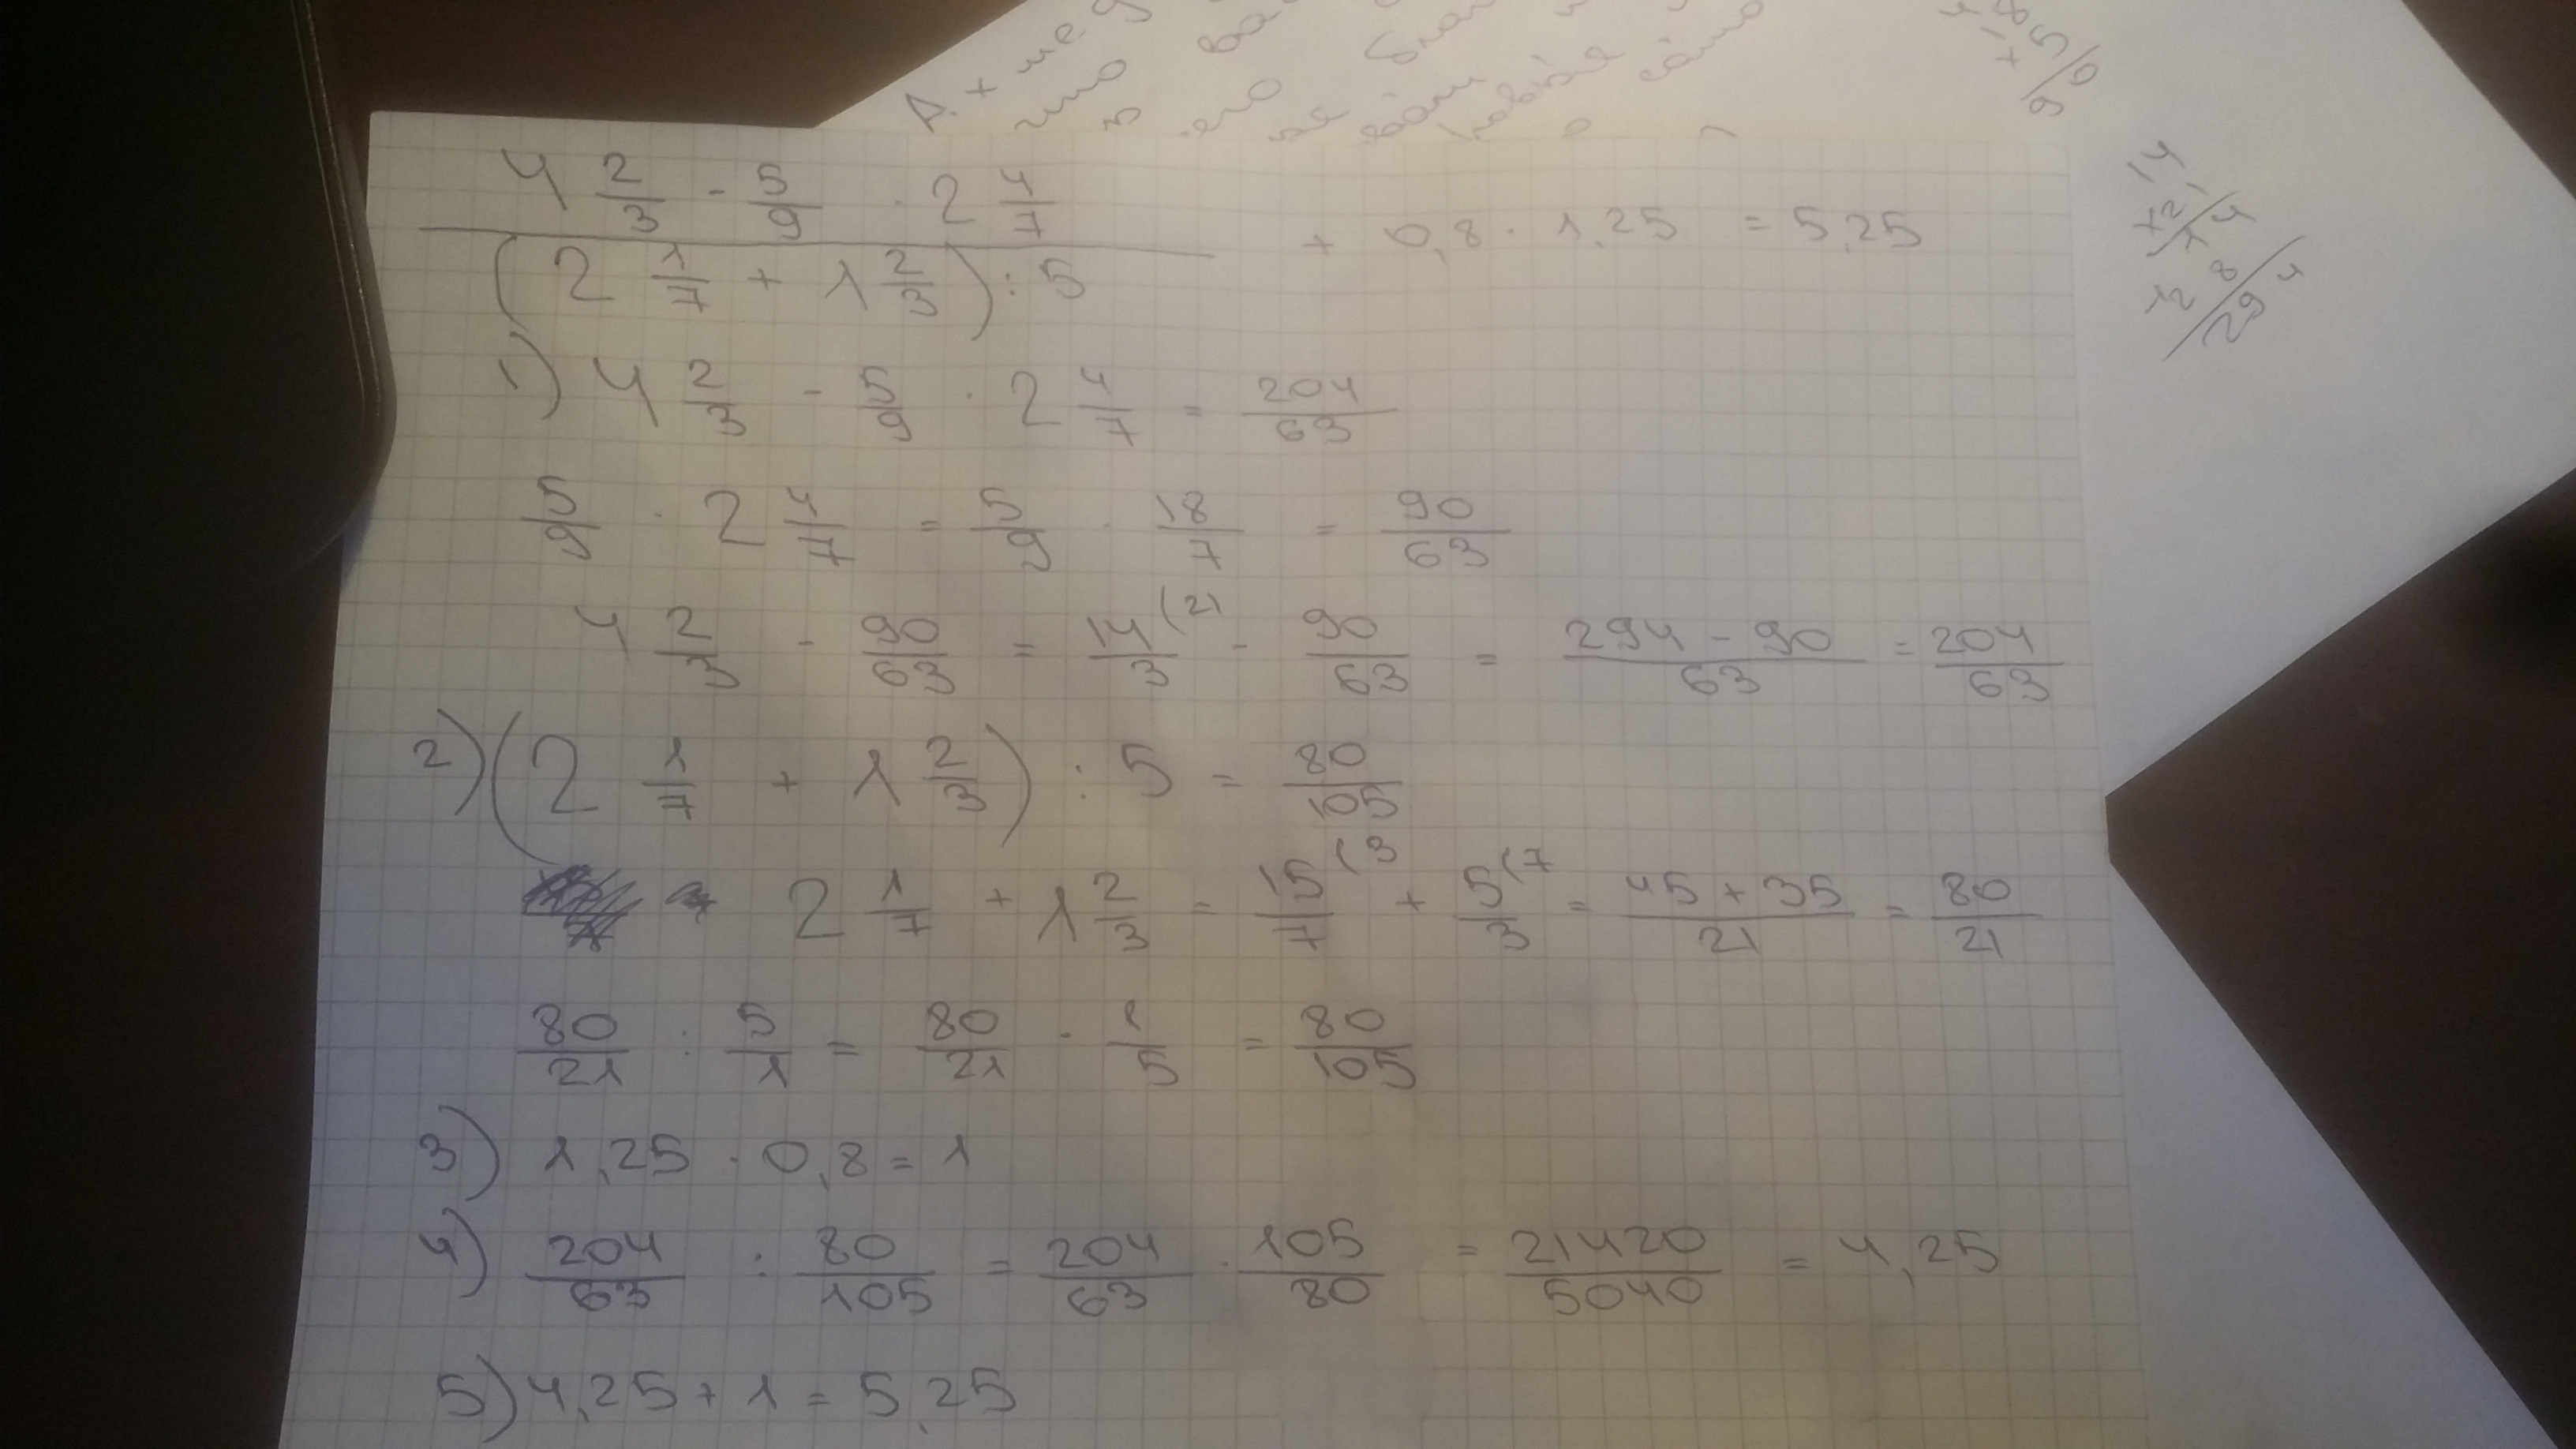 4 2/3 - 5/9 · 2 4/7
(2 1/7 + 1 2/3) : 5
+ 0,8 · 1,25 = 5,25
1) 4 2/3 - 5/9 · 2 4/7 = 204/63
5/9 · 2 4/7 = 5/9 · 18/7 = 90/63
4 2/3 - 90/63 = 14/3 (21 - 90/63 = 294 - 90/63 = 204/63
2) (2 1/7 + 1 2/3) : 5 = 80/105
2 1/7 + 1 2/3 = 15/7 (3 + 5/3 (7 = 45 + 35/21 = 80/21
80/21 : 5/1 = 80/21 · 1/5 = 80/105
3) 1,25 · 0,8 = 1
4) 204/63 : 80/105 = 204/63 · 105/80 = 21420/5040 = 4,25
5) 4,25 + 1 = 5,25